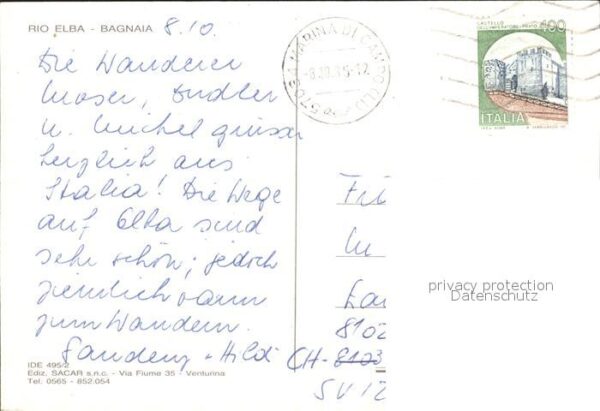 RIO ELBA - BAGNAIA 8.10.
Die Wanderer
Moser, Endler
u. Michel grüssen
herzlich aus
Italia! Die Wege
auf Elba sind
sehr schön, jedoch
ziemlich warm
zum Wandern.
Gaudenz + Hildi
IDE 495/2
Ediz. SACAR s.n.c. - Via Fiume 35 - Venturina
Tel. 0565 - 852.054
57034 MARINA DI CAMPO
CASTELLO
DELL'IMPERATORE PRATO
400
ITALIA
privacy protection
Datenschutz
8102
CH-8103